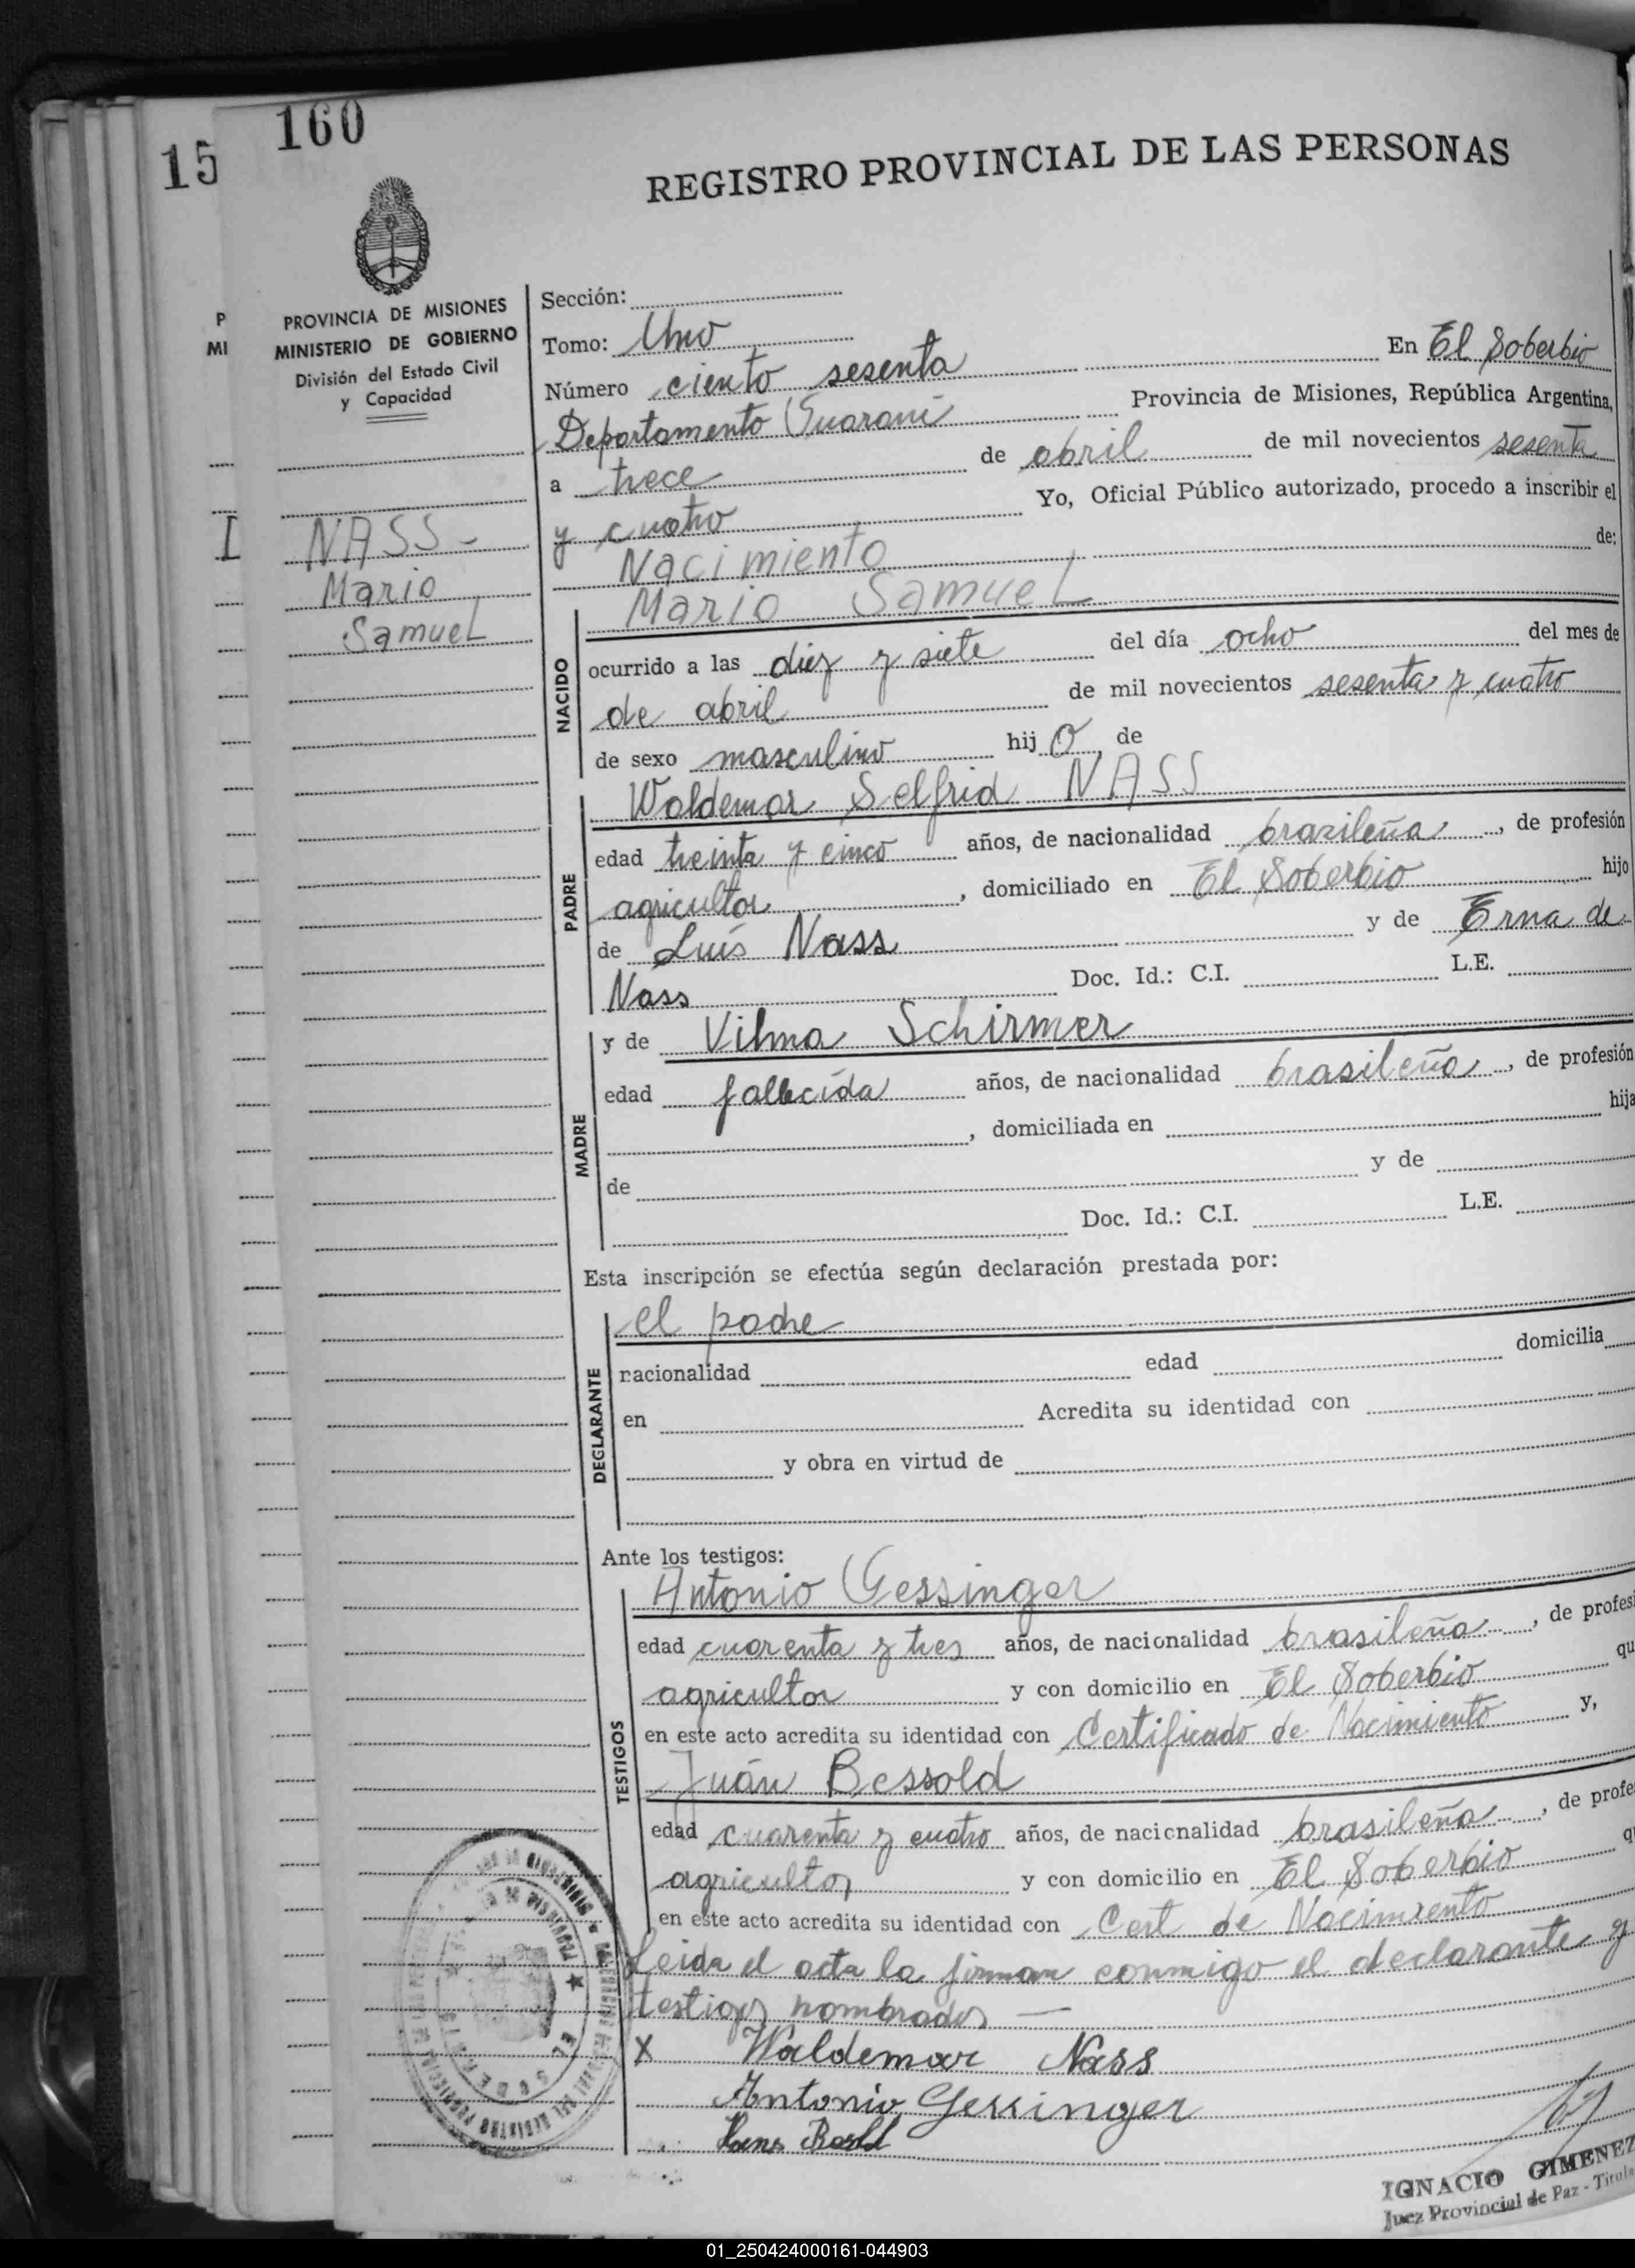 160
15
REGISTRO PROVINCIAL DE LAS PERSONAS
P
MI
PROVINCIA DE MISIONES
MINISTERIO DE GOBIERNO
División del Estado Civil
y Capacidad
I
NASS -
Mario
Samuel
Sección:
Tomo: Uno
Número ciento sesenta En El Soberbio
Departamento Guaraní Provincia de Misiones, República Argentina,
a trece de abril de mil novecientos sesenta
y cuatro Yo, Oficial Público autorizado, procedo a inscribir el
Nacimiento de:
Mario Samuel
NACIDO
ocurrido a las diez y siete del día ocho del mes de
de abril de mil novecientos sesenta y cuatro
de sexo masculino hij o, de
Waldemar Selfrid NASS
PADRE
edad treinta y cinco años, de nacionalidad brazileña, de profesión
agricultor, domiciliado en El Soberbio hijo
de Luís Nass y de Erna de
Nass Doc. Id.: C.I. L.E.
y de Vilma Schirmer
MADRE
edad fallecida años, de nacionalidad brasileña, de profesión
, domiciliada en hija
de y de
Doc. Id.: C.I. L.E.
Esta inscripción se efectúa según declaración prestada por:
el padre
DECLARANTE
nacionalidad edad domicilia
en Acredita su identidad con
y obra en virtud de
Ante los testigos:
Antonio Gessinger
TESTIGOS
edad cuarenta y tres años, de nacionalidad brasileña, de profesi
agricultor y con domicilio en El Soberbio qu
en este acto acredita su identidad con Certificado de Nacimiento y,
Juán Bessold
edad cuarenta y cuatro años, de nacionalidad brasileña, de profe
agricultor y con domicilio en El Soberbio q
en este acto acredita su identidad con Cert de Nacimiento
Leida el acta la firman conmigo el declarante y
testigos nombrados —
X Waldemar Nass
Antonio Gessinger
IGNACIO GIMENEZ
Juez Provincial de Paz - Titula
01_250424000161-044903